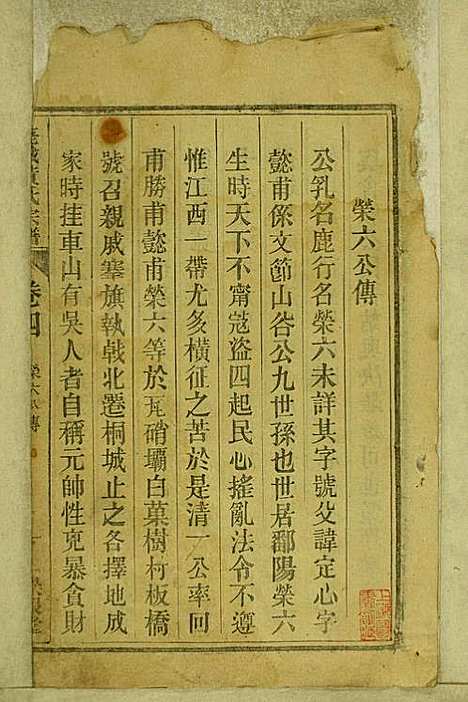 榮六公傳
公乳名鹿行名榮六未詳其字號父諱定心字
懿甫係文節山谷公九世孫也世居鄱陽榮六
生時天下不甯寇盜四起民心搖亂法令不遵
惟江西一帶尤多橫征之苦於是清一公率回
甫勝甫懿甫榮六等於瓦硝壩白菓樹柯板橋
號召親戚搴旗執戟北遷桐城止之各擇地成
家時挂車山有吳人者自稱元帥性兇暴貪財
黃氏宗譜
卷四
榮六公傳